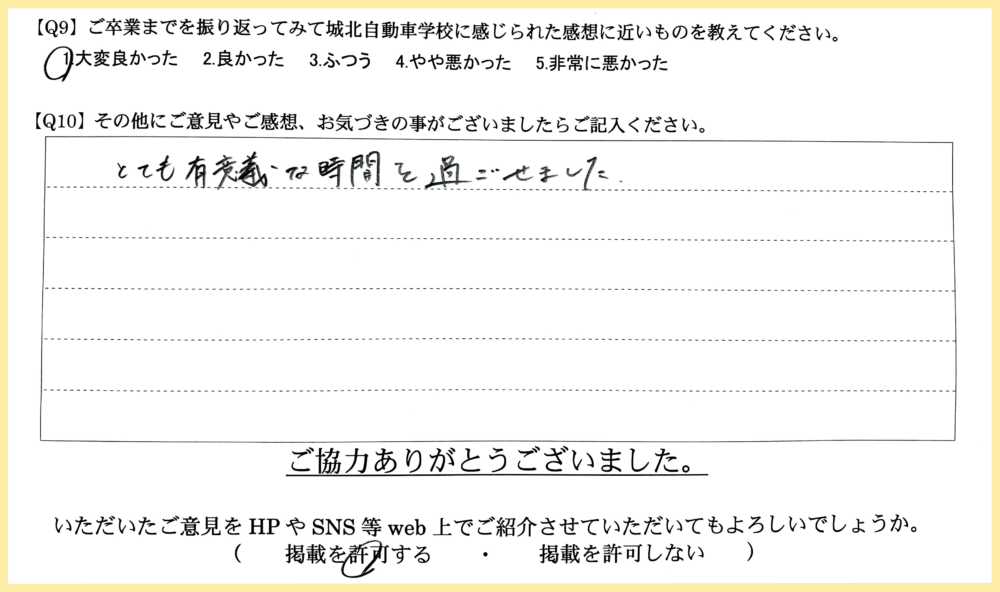 【Q9】ご卒業までを振り返ってみて城北自動車学校に感じられた感想に近いものを教えてください。
1.大変良かった 2.良かった 3.ふつう 4.やや悪かった 5.非常に悪かった
【Q10】その他にご意見やご感想、お気づきの事がございましたらご記入ください。
とても有意義な時間を過ごせました.
ご協力ありがとうございました。
いただいたご意見を HP や SNS 等 web 上でご紹介させていただいてもよろしいでしょうか。
( 掲載を許可する ・ 掲載を許可しない )